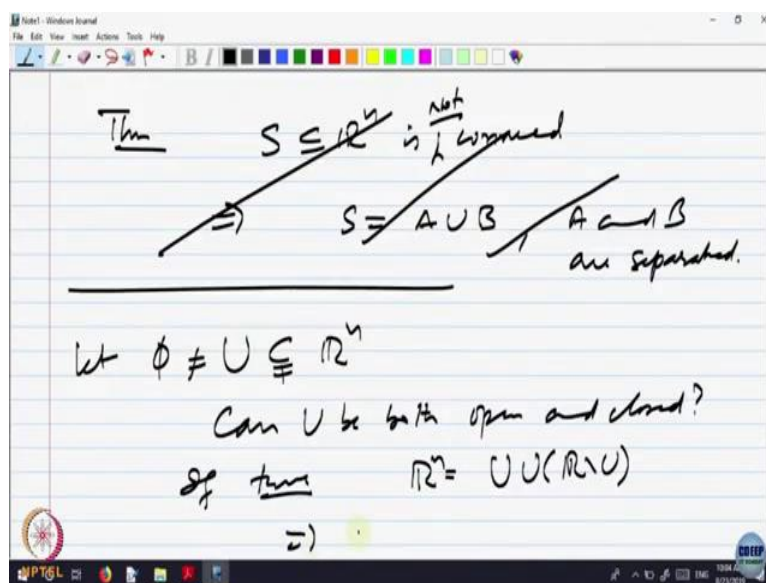 Note1 - Windows Journal
File Edit View Insert Actions Tools Help
Thm S ⊆ ℝⁿ is not connected
⇒) S = A ∪ B, A and B
are separated.
let ϕ ≠ U ⊊ ℝⁿ
Can U be both open and closed?
If true ℝⁿ = U ∪ (ℝ \ U)
⇒)
NPTEL
CDEEP
ENG
10:04 AM